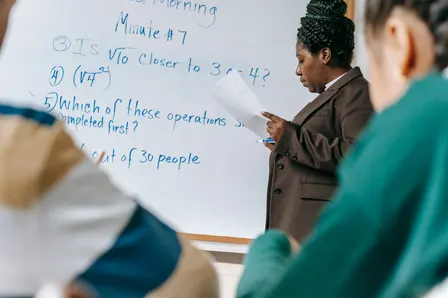 Morning
Minute #7
③ Is √10 closer to 3 or 4?
④ (√4)²
⑤ Which of these operations
completed first?
out of 30 people